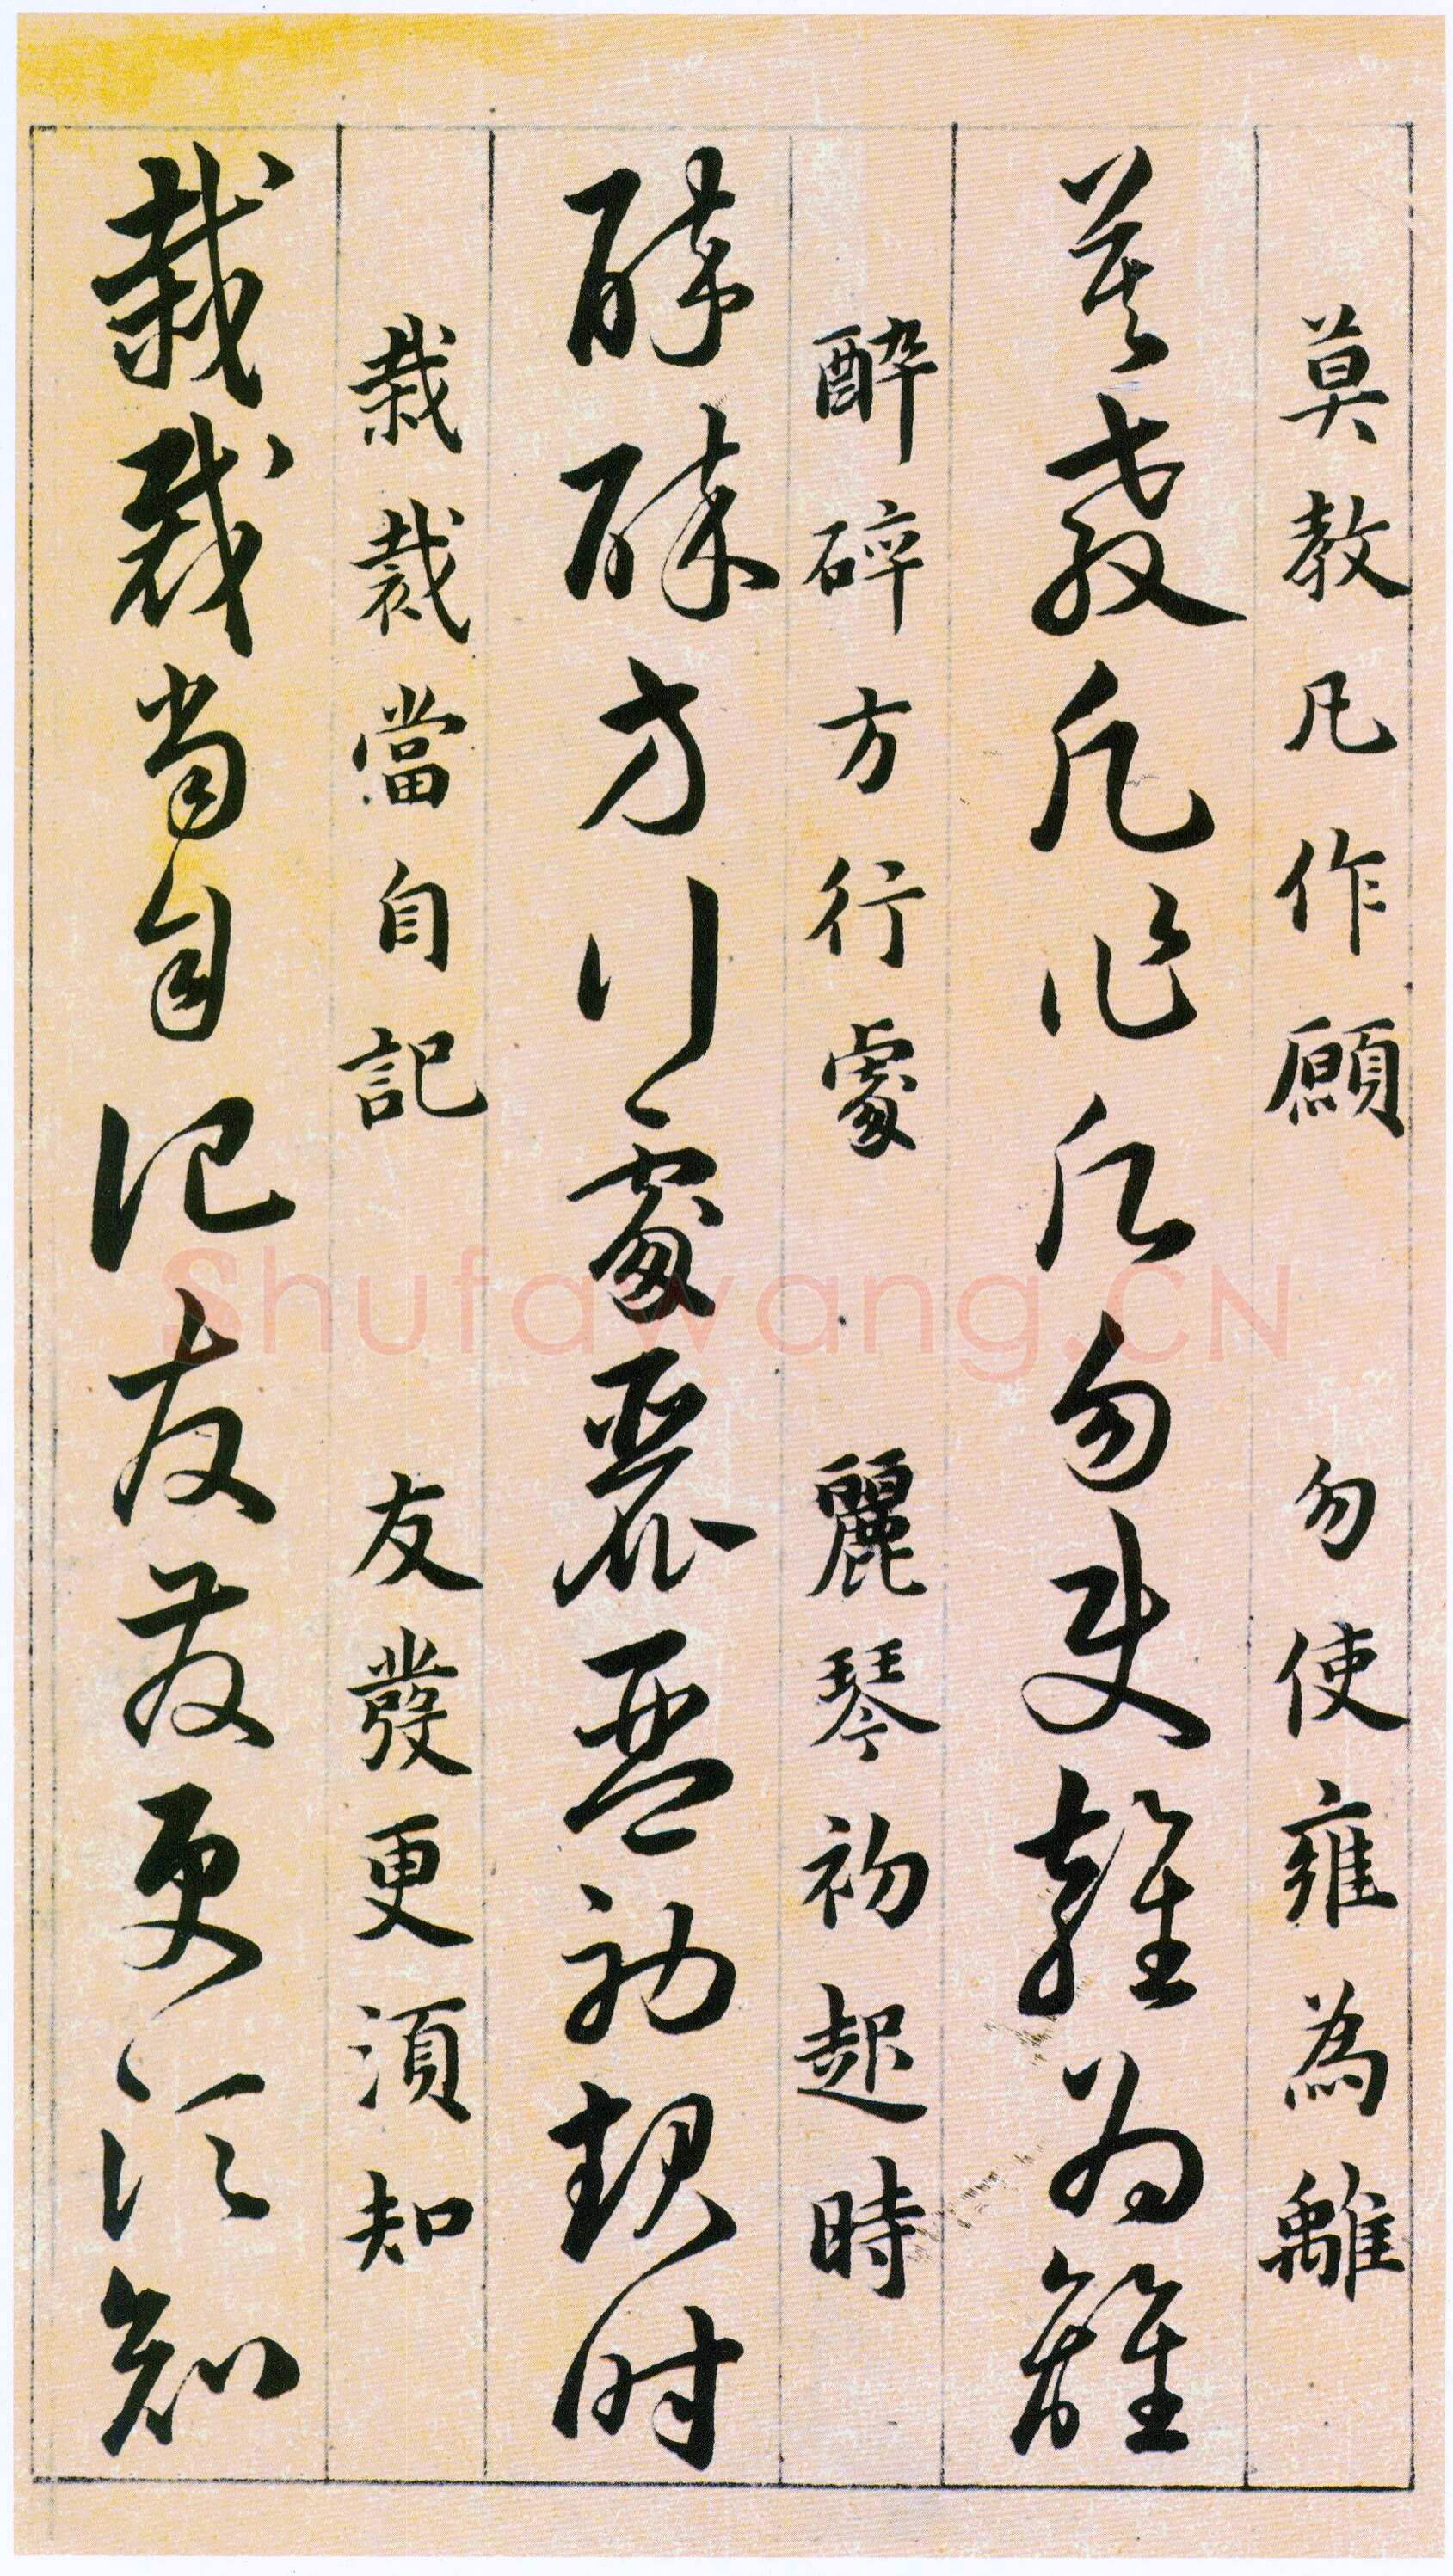 莫教凡作願 勿使雍為離
莫教凡作願勿使雍為離
醉碎方行處 麗琴初起時
醉碎方行處麗琴初起時
栽裁當自記 友發更須知
栽裁當自記友發更須知
Shufawang.CN